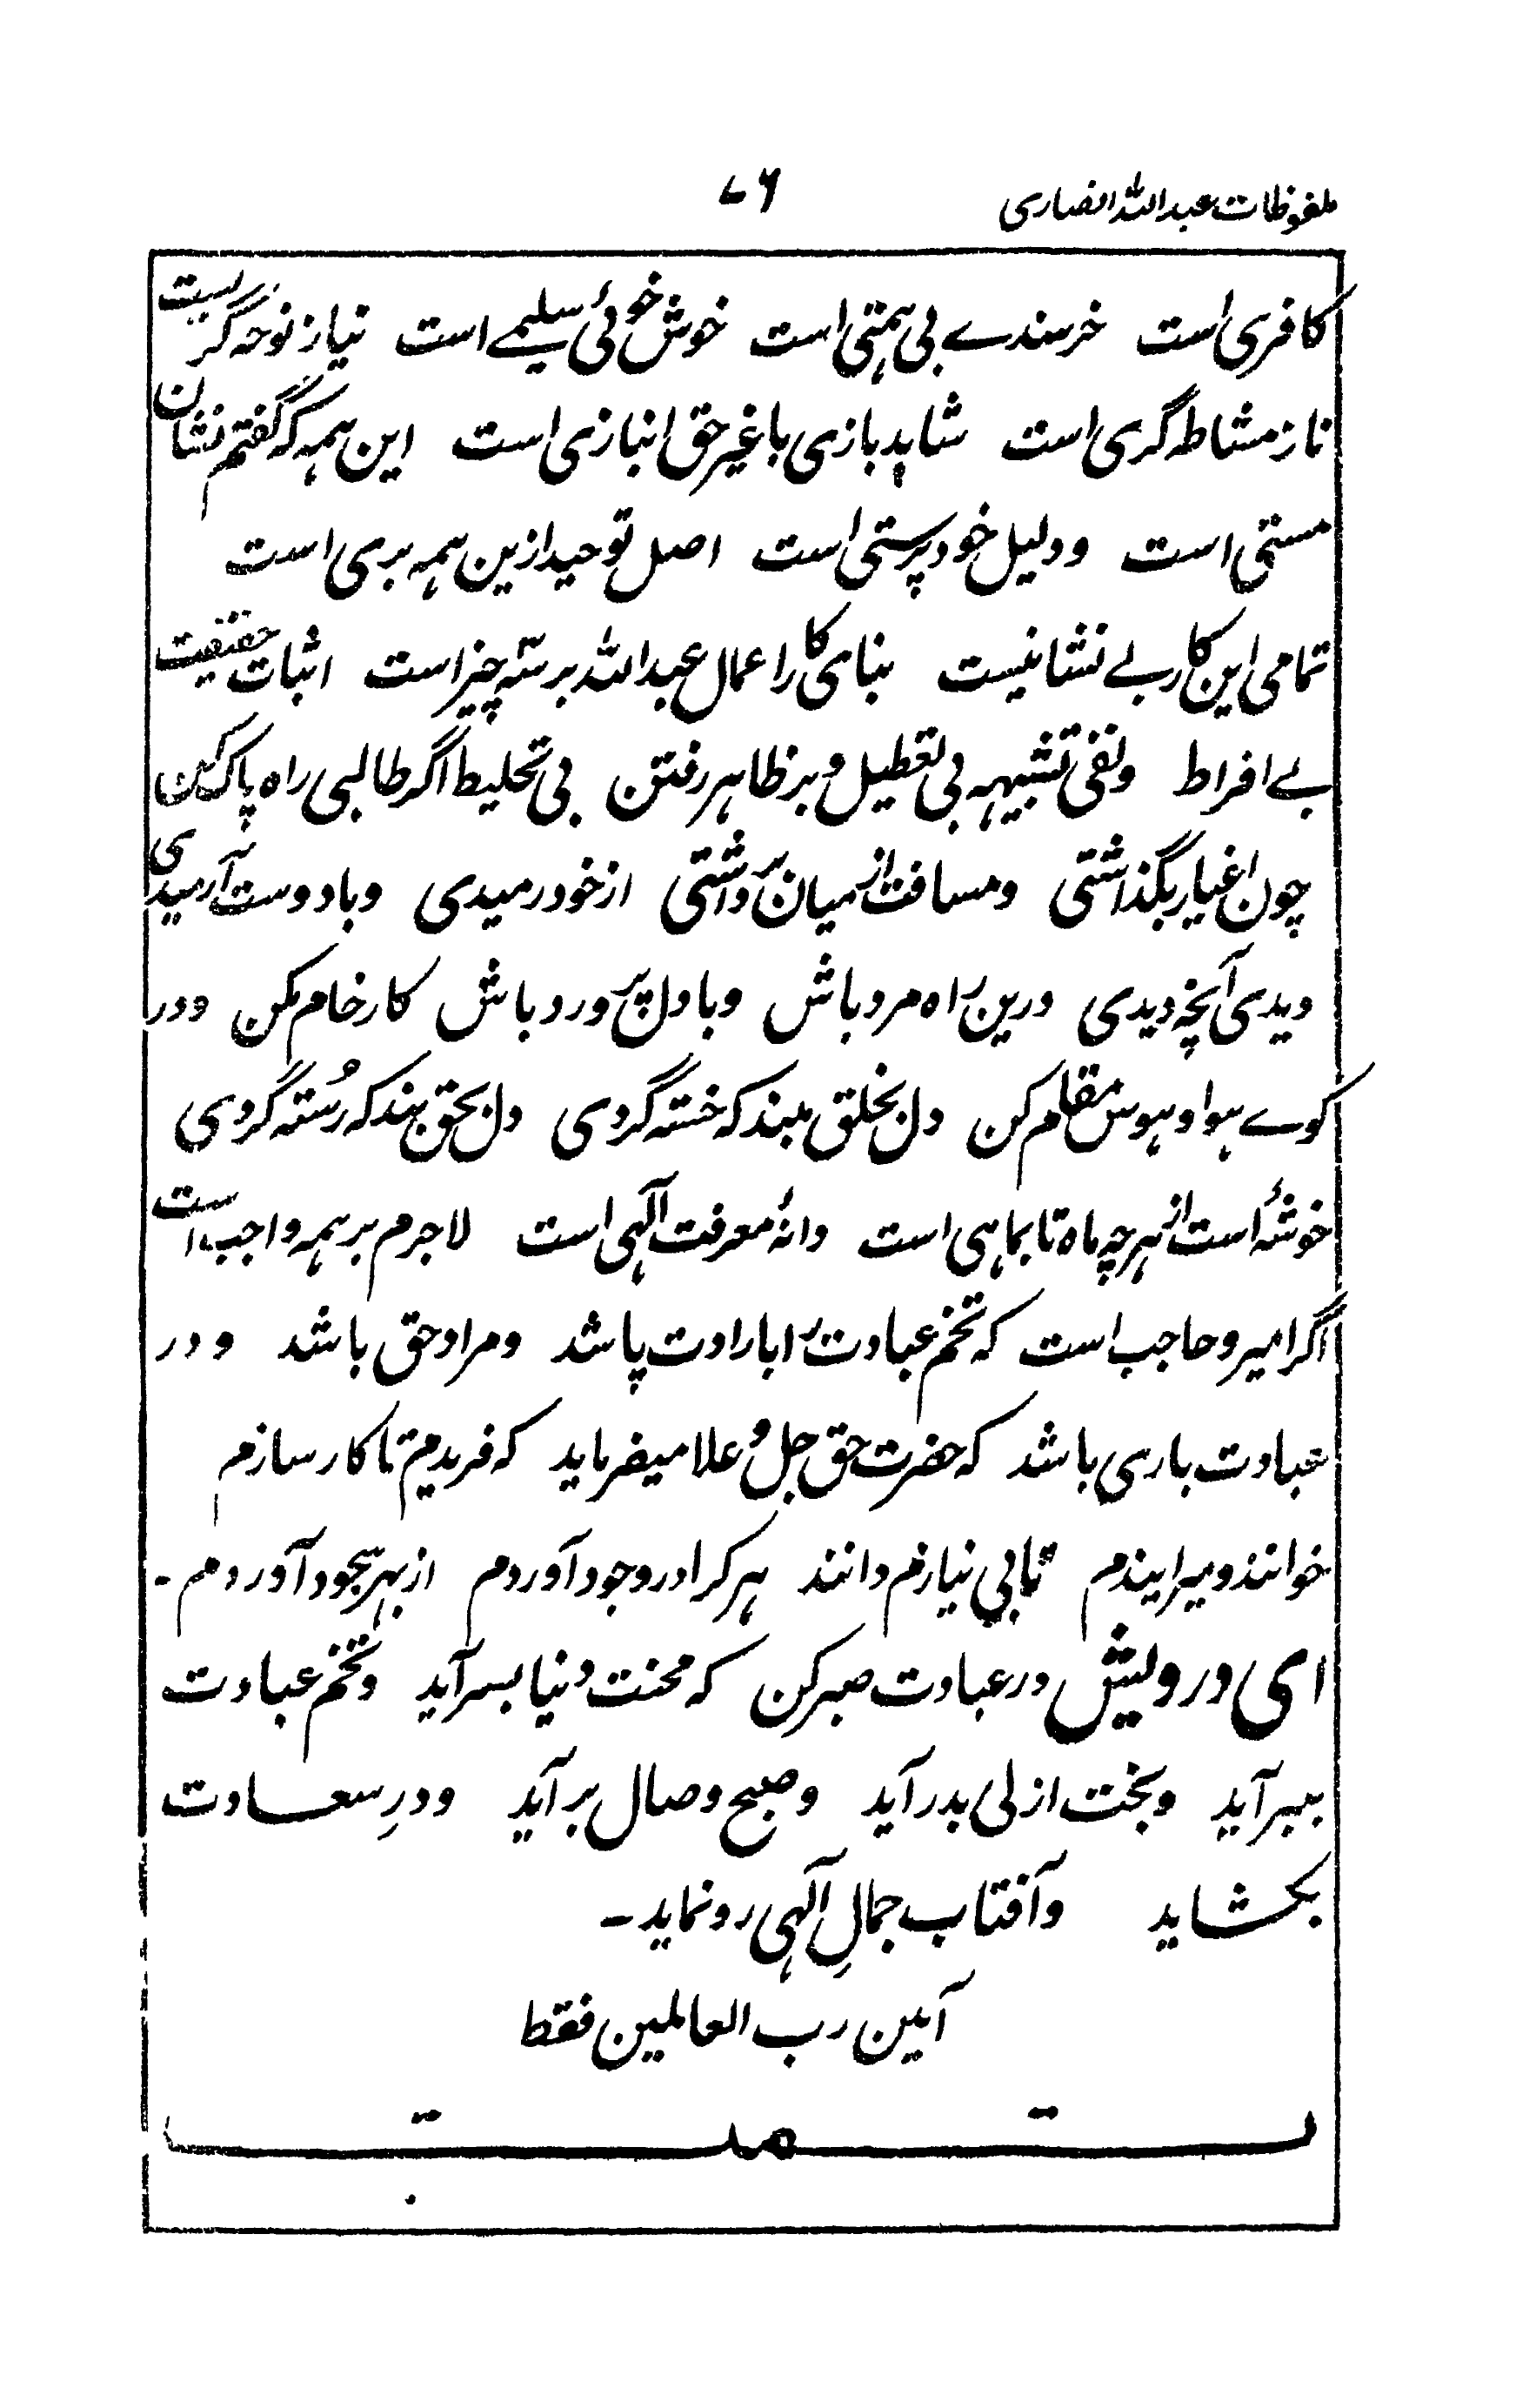 ملفوظات عبداللہ انصاری ۷۶
کافری است خرسندے بی ہمتی است خوش خوئی سلیمے است نیاز نوحہ گریست
ناز مشاطہ گری است شاہد بازی با غیر حق انبازی است این ہمہ کہ گفتم نشان
مستی است و دلیل خود پرستی است اصل توحید ازین ہمہ بری است
تمامی این کار بے نشانیست بنامی کار اعمال عبداللہ بر سہ چیز است اثبات حقیقت
بے افراط و نفی تشبیہہ بی تعطیل و بر ظاہر رفتن بی تخلیط اگر طالبی راہ پاک کن
چون اغیار بگذاشتی و مسافت از میان برداشتی از خود رمیدی و با دوست آرمیدی
دیدی آنچہ دیدی درین راہ مرد باش و با دل پر درد باش کار خام مکن و در
کوے ہوا و ہوس مقام مکن دل بخلق مبند کہ خستہ گردی دل بحق بند کہ رُستہ گردی
خوشۂ است از ہرچہ ماہ تا بماہی است دانۂ معرفت الٰہی است لاجرم بر ہمہ واجب است
اگر امیر و حاجب است کہ تخم عبادت را بارادت پاشد و مراد حق باشد و در
عبادت باری باشد کہ حضرت حق جل و علا میفرماید کہ فریدم تا کار سازم
خوانند و میرانیدم تا بی نیازم دانند ہر کرا در وجود آوردم از بہر سجود آوردم ۔
ای درویش در عبادت صبر کن کہ محنت دنیا بسر آید و تخم عبادت
ببر آید و بخت ازلی بدر آید و صبح وصال بر آید و درِ سعادت
بکشاید و آفتاب جمالِ الٰہی رو نماید ۔
آمین رب العالمین فقط
تمت